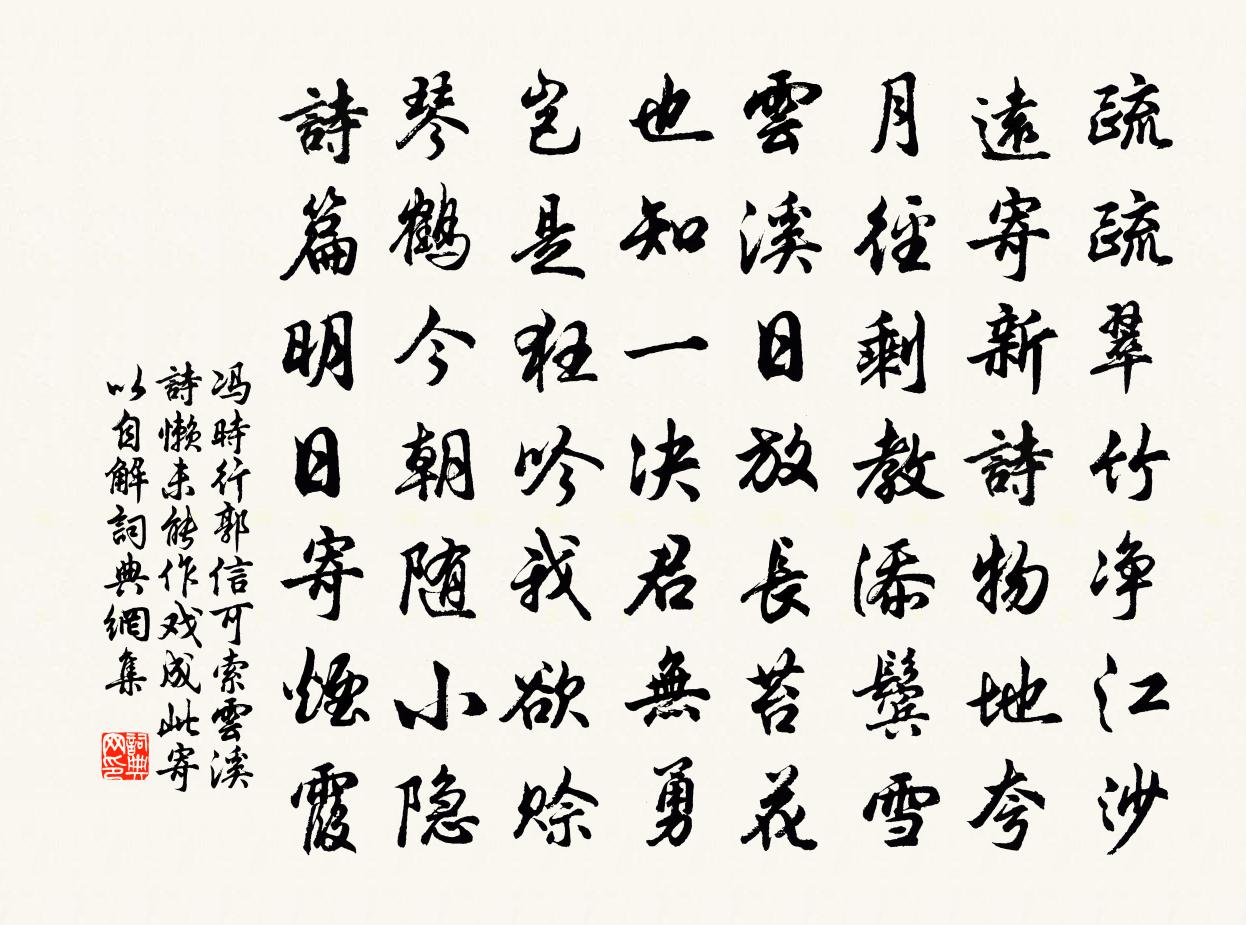 疏疏翠竹净江沙
遠寄新詩物地夸
月徑剩教添鬓雪
雲溪日放長苔花
也知一决君無勇
岂是狂吟我欲赊
琴鶴今朝随小隐
詩篇明日寄煙霞
冯時行郭信可索雲溪
詩懒未能作戏成此寄
以自解詞典網集
詞典网印